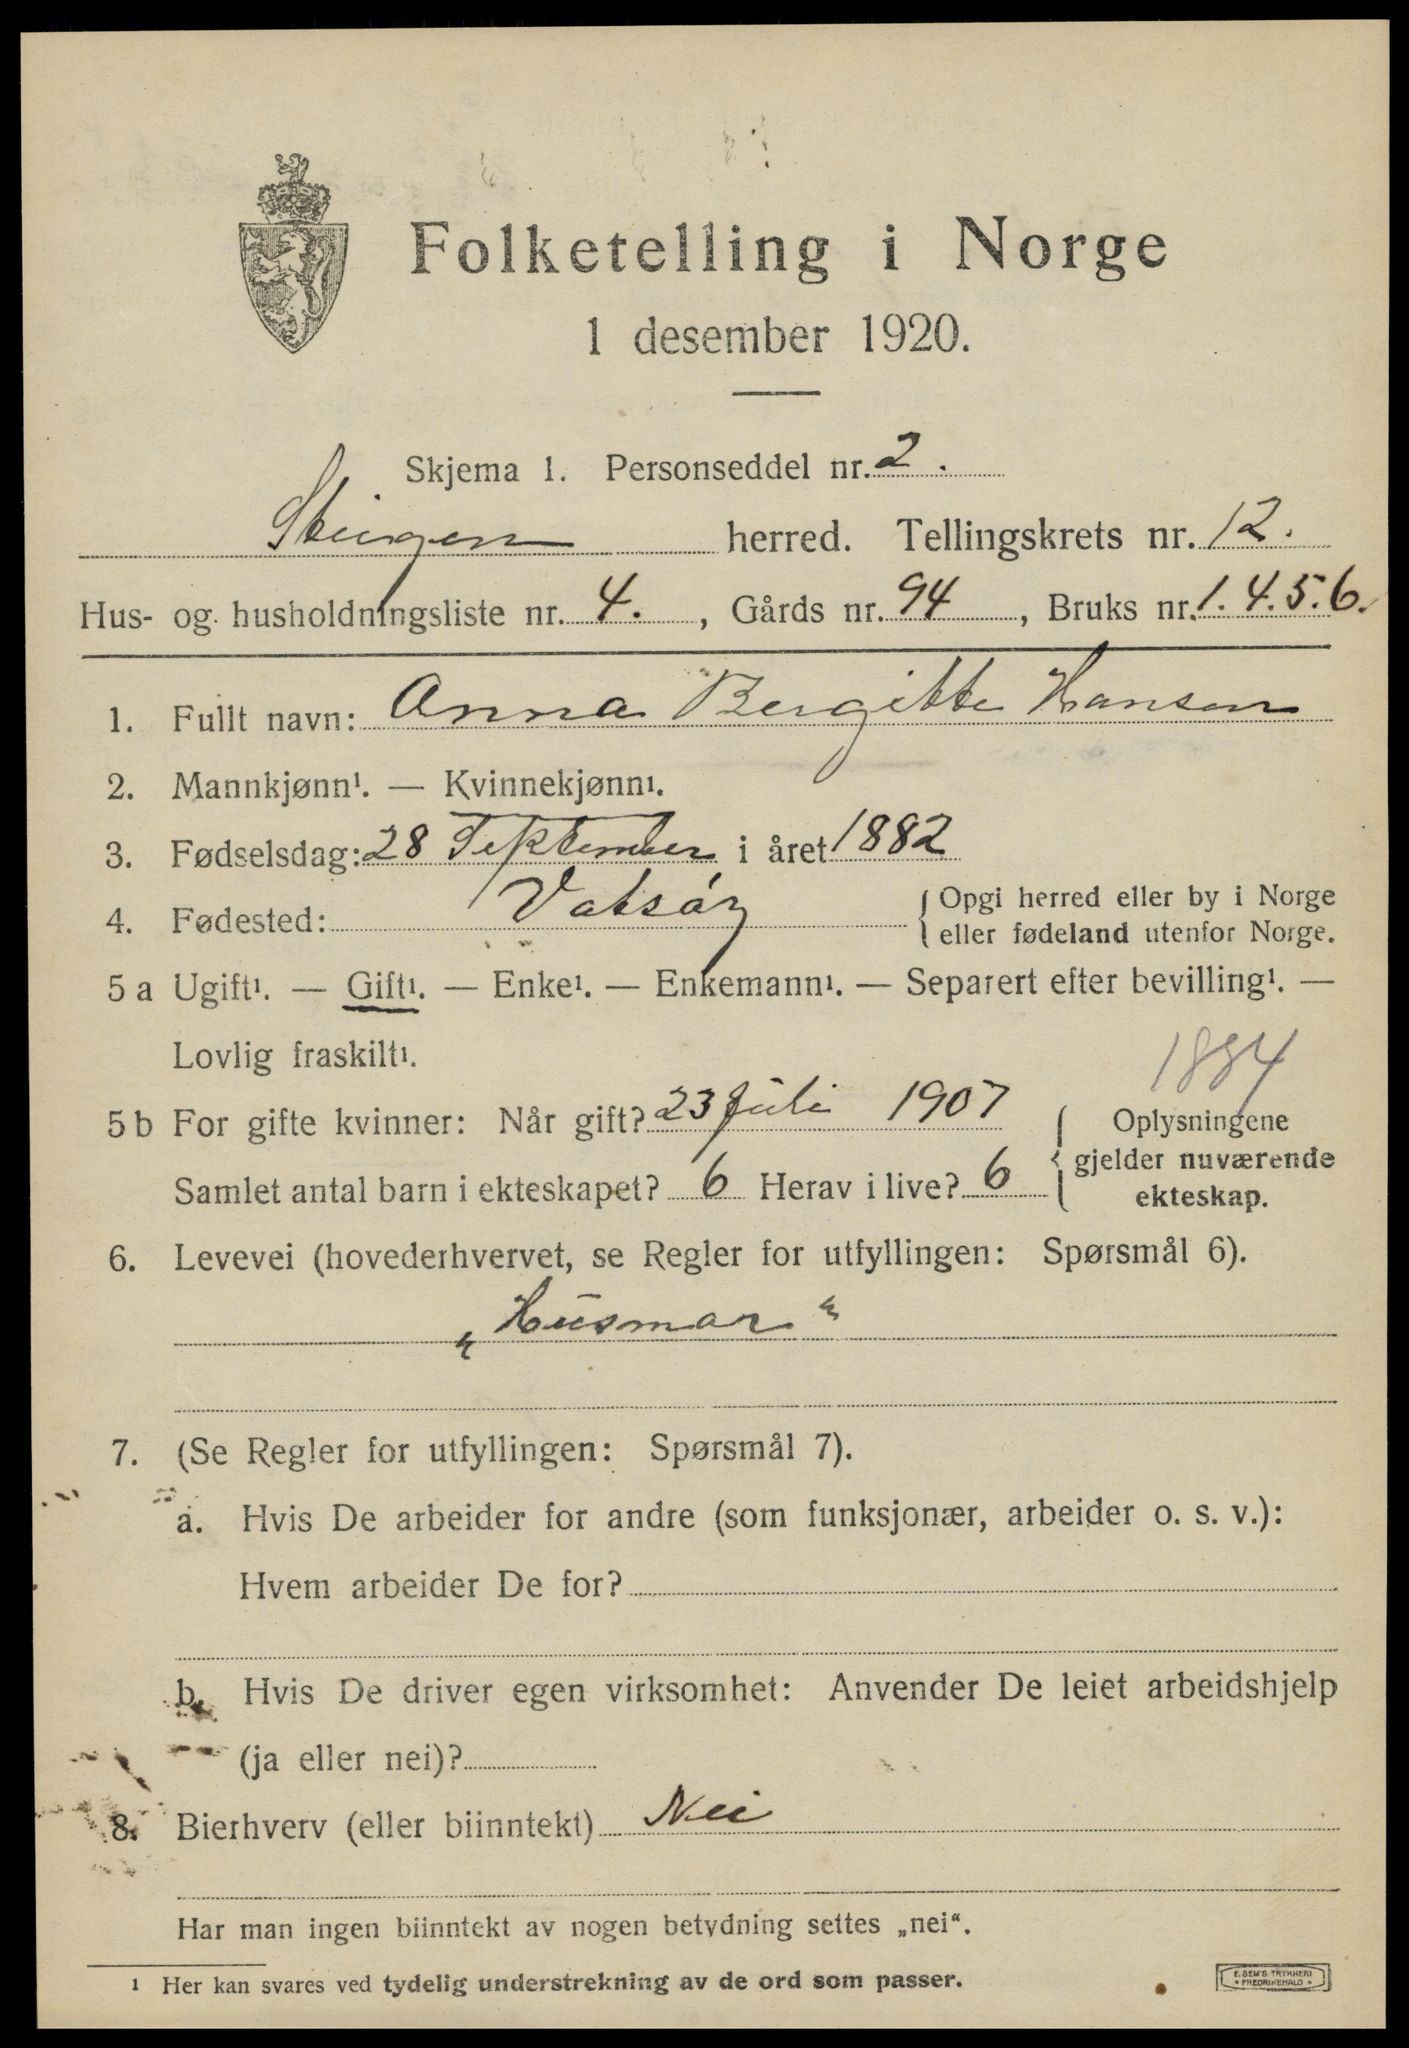 Folketelling i Norge
1 desember 1920.
Skjema 1. Personseddel nr. 2.
Steigen herred. Tellingskrets nr. 12.
Hus- og husholdningsliste nr. 4. , Gårds nr. 94 , Bruks nr. 1.4.5.6.
1. Fullt navn: Anna Bergitte Hansen
2. Mannkjønn¹. — Kvinnekjønn¹.
3. Fødselsdag: 28 September i året 1882
4. Fødested: Vatsøy { Opgi herred eller by i Norge
eller fødeland utenfor Norge.
5 a Ugift¹. — Gift¹. — Enke¹. — Enkemann¹. — Separert efter bevilling¹. —
Lovlig fraskilt¹.
1884
5 b For gifte kvinner: Når gift? 23 Juli 1907
Samlet antal barn i ekteskapet? 6 Herav i live? 6
Oplysningene
gjelder nuværende
ekteskap.
6. Levevei (hovederhvervet, se Regler for utfyllingen: Spørsmål 6).
„Husmor"
7. (Se Regler for utfyllingen: Spørsmål 7).
a. Hvis De arbeider for andre (som funksjonær, arbeider o. s. v.):
Hvem arbeider De for?
b. Hvis De driver egen virksomhet: Anvender De leiet arbeidshjelp
(ja eller nei)?
8. Bierhverv (eller biinntekt) Nei
Har man ingen biinntekt av nogen betydning settes „nei“.
¹ Her kan svares ved tydelig understrekning av de ord som passer.
E. SEM'S TRYKKERI
FREDRIKSHALD